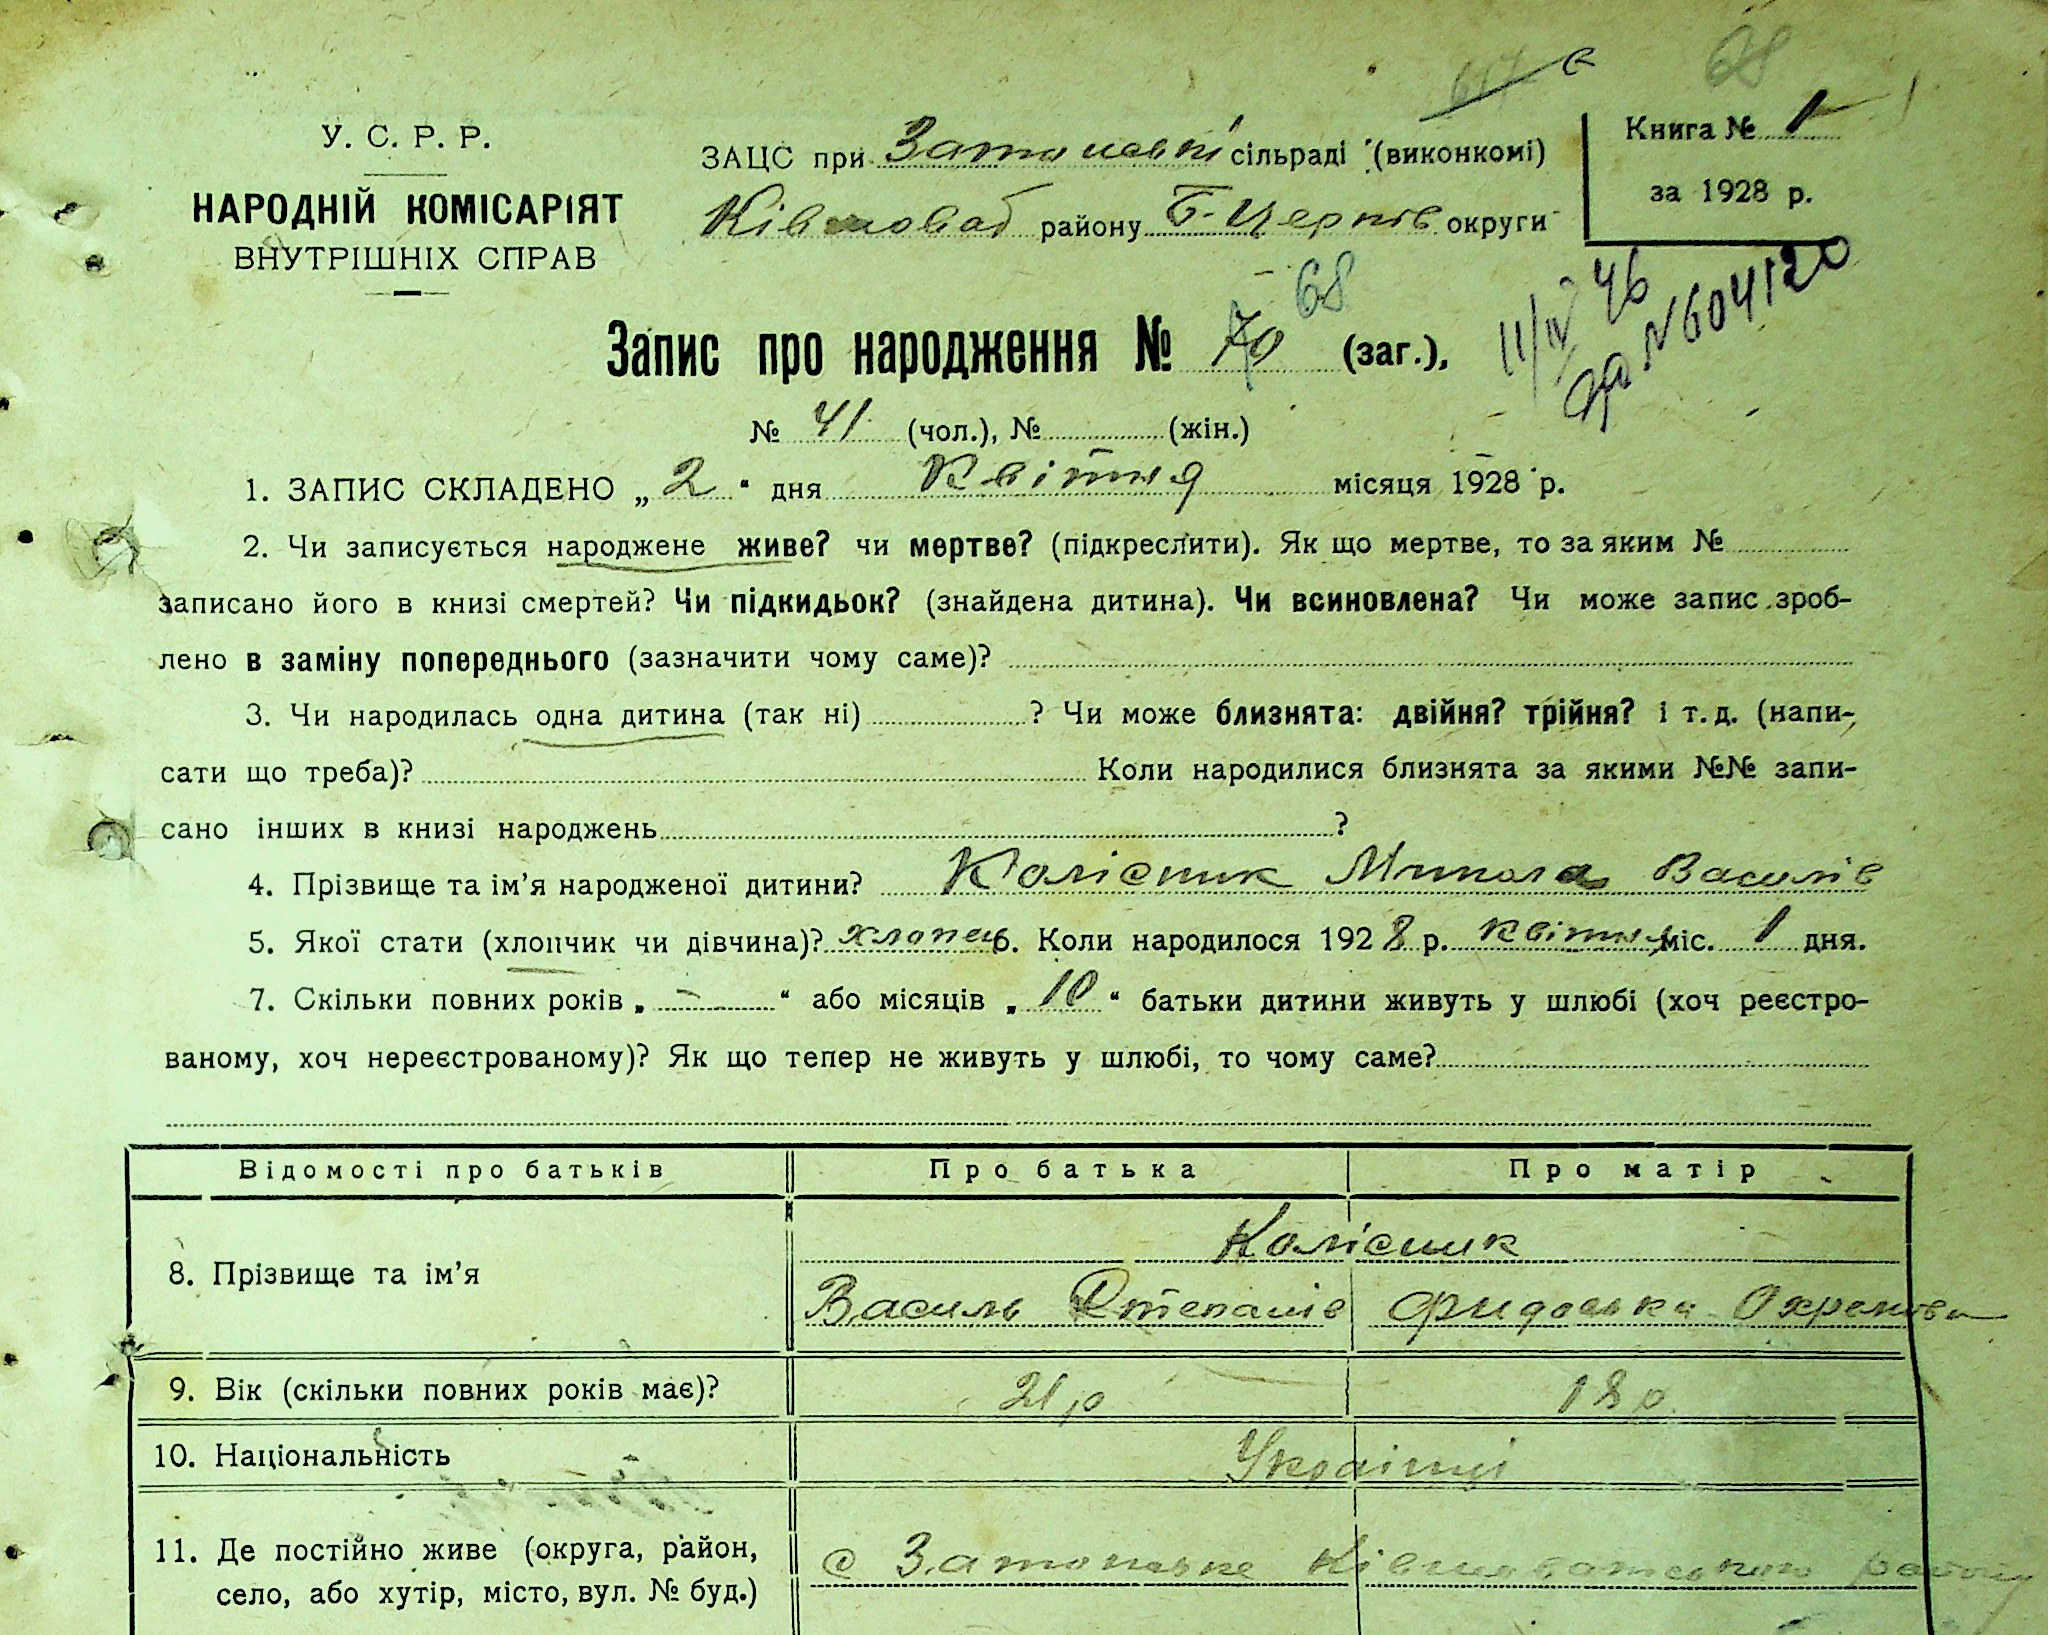 68
У. С. Р. Р.
НАРОДНІЙ КОМІСАРІЯТ
ВНУТРІШНІХ СПРАВ
ЗАЦС при сільраді (виконкомі)
району Б-Церків округи
Книга № 1
за 1928 р.
11/IV 46
№604120
68
Запис про народження № 70 (заг.),
№ 41 (чол.), № (жін.)
1. ЗАПИС СКЛАДЕНО „ 2 “ дня Квітня місяця 1928 р.
2. Чи записується народжене живе? чи мертве? (підкреслити). Як що мертве, то за яким №
записано його в книзі смертей? Чи підкидьок? (знайдена дитина). Чи всиновлена? Чи може запис зроб-
лено в заміну попереднього (зазначити чому саме)?
3. Чи народилась одна дитина (так ні) ? Чи може близнята: двійня? трійня? і т. д. (напи-
сати що треба)? Коли народилися близнята за якими №№ запи-
сано інших в книзі народжень ?
4. Прізвище та ім’я народженої дитини? Колісник Микола Василів
5. Якої стати (хлопчик чи дівчина)? хлопець 6. Коли народилося 1928 р. квітня міс. 1 дня.
7. Скільки повних років „ - “ або місяців „ 10 “ батьки дитини живуть у шлюбі (хоч реєстро-
ваному, хоч нереєстрованому)? Як що тепер не живуть у шлюбі, то чому саме?
Відомості про батьків Про батька Про матір
8. Прізвище та ім’я
Колісник
Василь Степанів Фидоська Охремова
9. Вік (скільки повних років має)? 21 р 18 р.
10. Національність Українці
11. Де постійно живе (округа, район,
село, або хутір, місто, вул. № буд.)
с